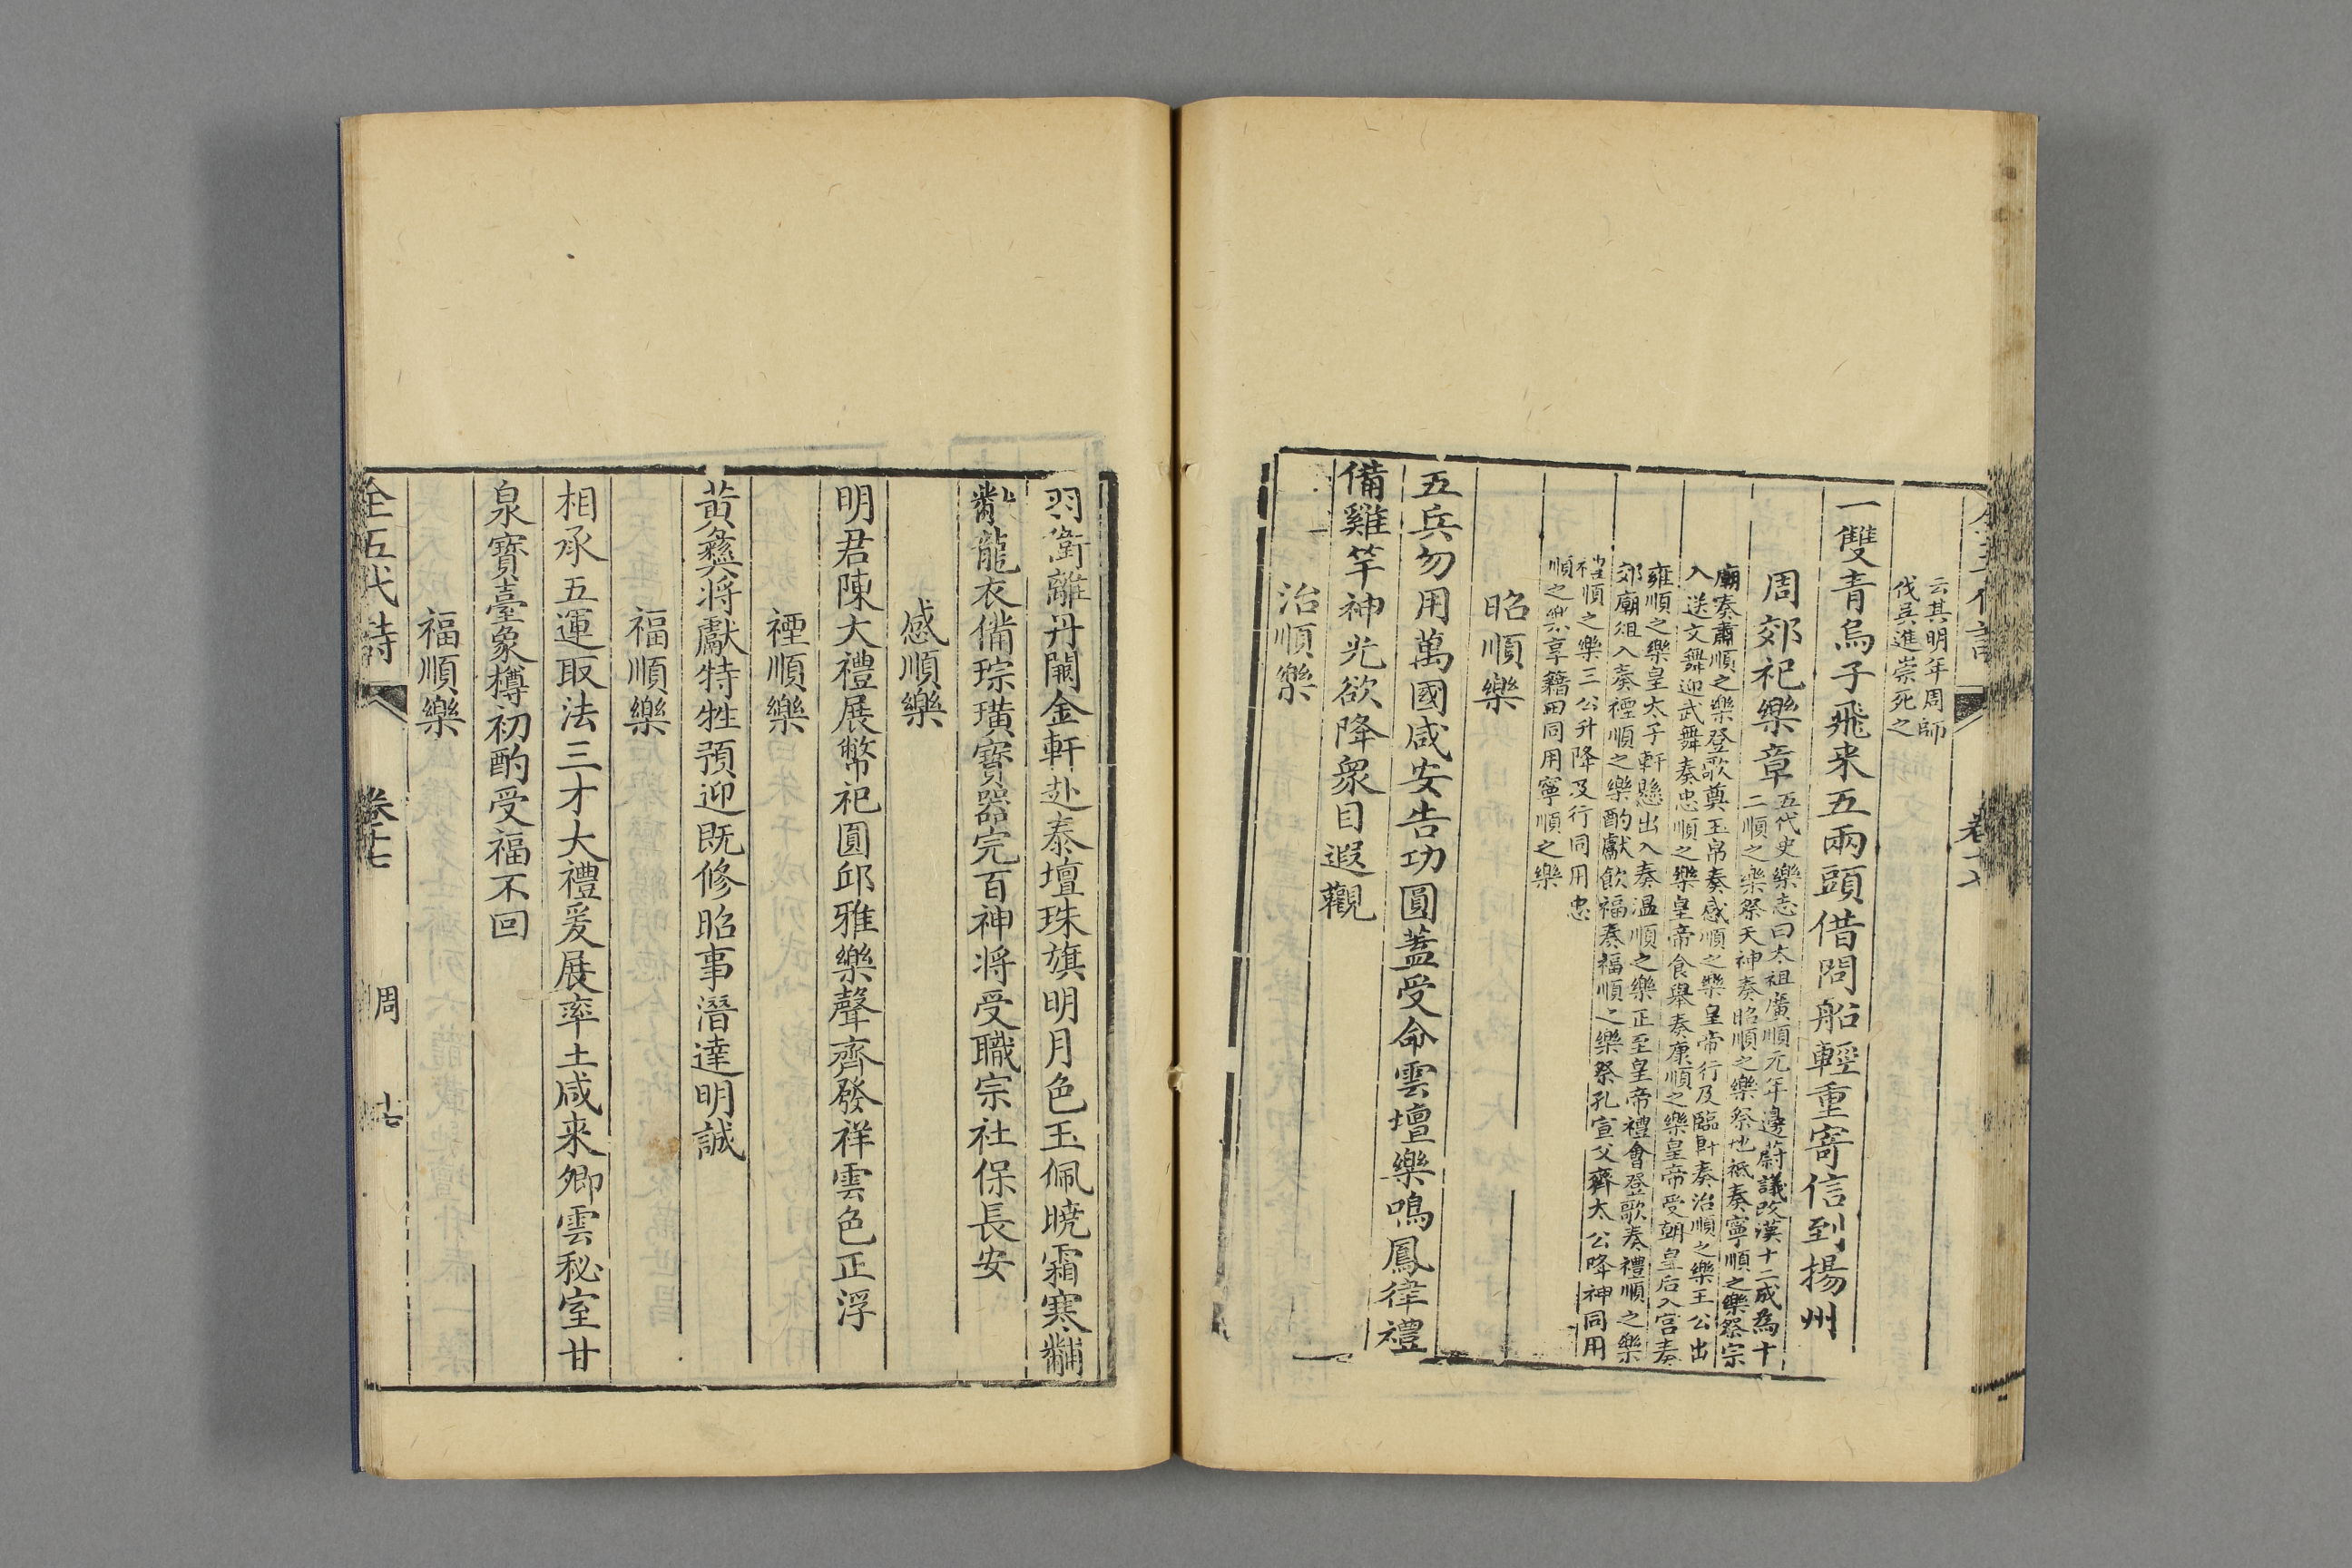 全五代詩
卷十七
云其明年周師
伐吳進崇死之
一雙青烏子飛来五兩頭借問船輕重寄信到揚州
周郊祀樂章
五代史樂志曰太祖廣順元年邊蔚議改漢十二成為十
二順之樂祭天神奏昭順之樂祭地祇奏寧順之樂祭宗
廟奏肅順之樂登歌奠玉帛奏感順之樂皇帝行及臨軒奏治順之樂王公出
入送文舞迎武舞奏忠順之樂皇帝食舉奏康順之樂皇帝受朝皇后入宮奏
雍順之樂皇太子軒懸出入奏温順之樂正至皇帝禮會登歌奏禮順之樂
郊廟俎入奏禋順之樂酌獻飲福奏福順之樂祭孔宣父齊太公降神同用
禮順之樂三公升降及行同用忠
順之樂享籍田同用寧順之樂
昭順樂
五兵勿用萬國咸安告功圓蓋受命雲壇樂鳴鳳律禮
備雞竿神光欲降衆目遐觀
治順樂
羽衛離丹闕金軒赴泰壇珠旗明月色玉佩曉霜寒黼
黻龍衣備琮璜寶器完百神将受職宗社保長安
感順樂
明君陳大禮展幣祀圓邱雅樂聲齊發祥雲色正浮
禋順樂
黃彝将獻特牲預迎既修昭事潛達明誠
福順樂
相承五運取法三才大禮爰展率土咸来卿雲秘室甘
泉寶臺象樽初酌受福不回
福順樂
全五代詩
卷十七
周
十七